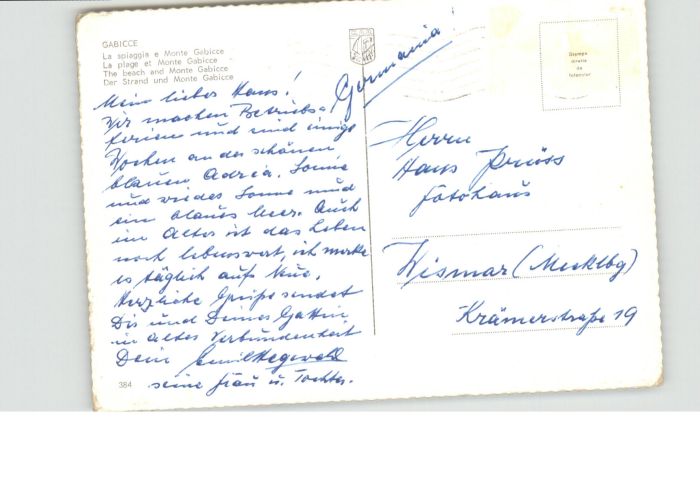 GABICCE
La spiaggia e Monte Gabicce
La plage et Monte Gabicce
The beach and Monte Gabicce
Der Strand und Monte Gabicce
Mein lieber Hans!
Wir machen Betriebs-
ferien und sind einige
Wochen an der schönen
blauen Adria. Sonne
und wieder Sonne und
ein blaues Meer. Auch
im Alter ist das Leben
noch lebenswert, ich merke
es täglich aufs Neue.
Herzliche Grüße sendet
Dir und Deiner Gattin
in alter Verbundenheit
Dein Emil Hegewald
seine Frau u. Tochter.
384
Germania!
Stampa
diretta
da
fotocolor
Herrn
Hans Prüss
Fotohaus
Wismar (Mecklbg)
Krämerstraße 19